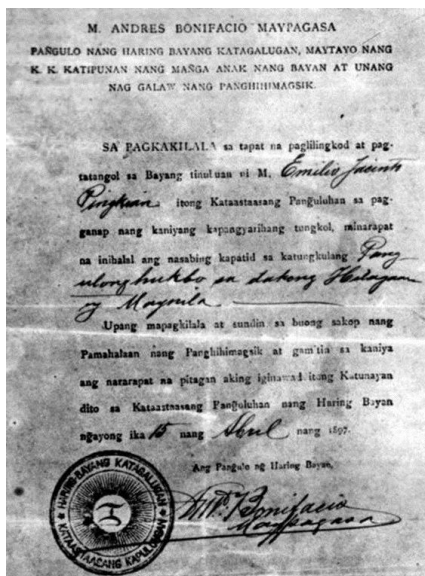 M. ANDRES BONIFACIO MAYPAGASA
PAÑGULO NANG HARING BAYANG KATAGALUGAN, MAYTAYO NANG
K. K. KATIPUNAN NANG MAÑGA ANAK NANG BAYAN AT UNANG
NAG GALAW NANG PANGHIHIMAGSIK.
SA PAGKAKILALA sa tapat na paglilingkod at pag-
tatangol sa Bayang tinubuan ni M. Emilio Jacinto
Pingkian itong Kataastaasang Pañguluhan sa pag-
ganap nang kaniyang kapangyarihang tungkol, minarapat
na inihalal ang nasabing kapatid sa katungkulang Pang
ulong hukbo sa dakong Hilagaan
ng Maynila.
Upang mapagkilala at sundin sa buong sakop nang
Pamahalaan nang Panghihimagsik at gamtin sa kaniya
ang nararapat na pitagan aking iginawad itong Katunayan
dito sa Kataastaasang Pañguluhan nang Haring Bayan
ngayong ika 15 nang Abril nang 1897.
Ang Pangulo ng Haring Bayan,
HARING BAYANG KATAGALUGAN
KATAASTAASANG KAPULUNGAN
Bonifacio
Maypagasa